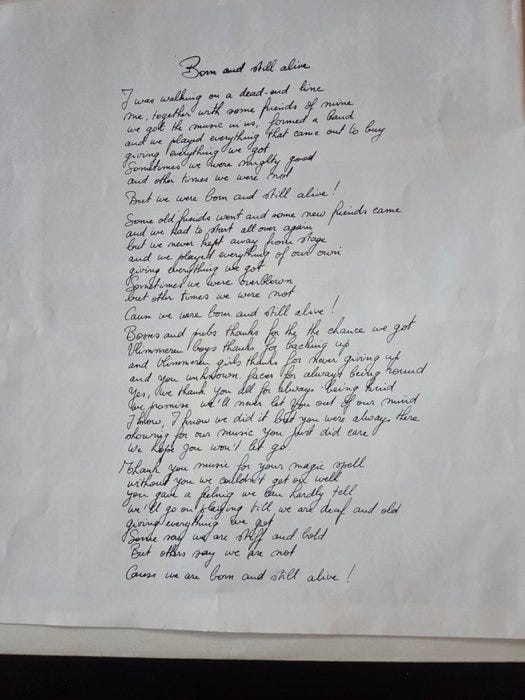 Born and still alive
I was walking on a dead-end line
me, together with some friends of mine
we got the music in us, formed a band
and we played everything that came out to buy
giving everything we got
Sometimes we were mighty good
and other times we were not
But we were born and still alive!
Some old friends went and some new friends came
and we had to start all over again
but we never kept away from stage
and we played everything of our own
giving everything we got
Sometimes we were overblown
but other times we were not
Cause we were born and still alive!
and pubs thanks for the the chance we got
Vlimmeren boys thanks for backing up
and Vlimmeren girls thanks for never giving up
and you unknown faces for always being around
Yes, we thank you all for always being kind
we promise we'll never let you out of our mind
I know, I know we did it but you were always there
showing for our music you just did care
We hope you won't let go.
Thank you music for your magic spell
without you we couldn't get on well
you gave a feeling we can hardly tell
we'll go on playing till we are deaf and old
giving everything we got
Some say we are stiff and bold
But others say we are not
Cause we are born and still alive!